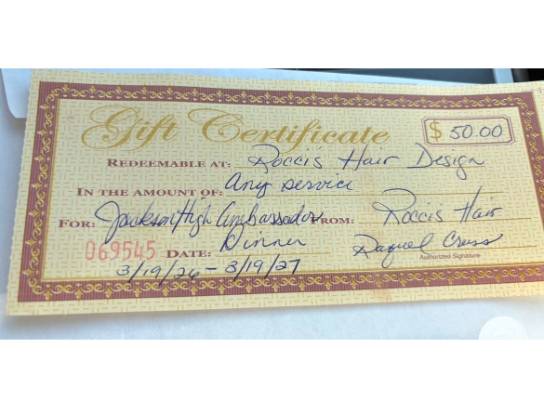 Gift Certificate $ 50.00
REDEEMABLE AT: Rocci's Hair Design
IN THE AMOUNT OF: Any service
FOR: Jackson High Ambassadors FROM: Roccis Hair
Dinner
069545 DATE: 3/19/26 - 3/19/27
Raquel Cross
Authorized Signature